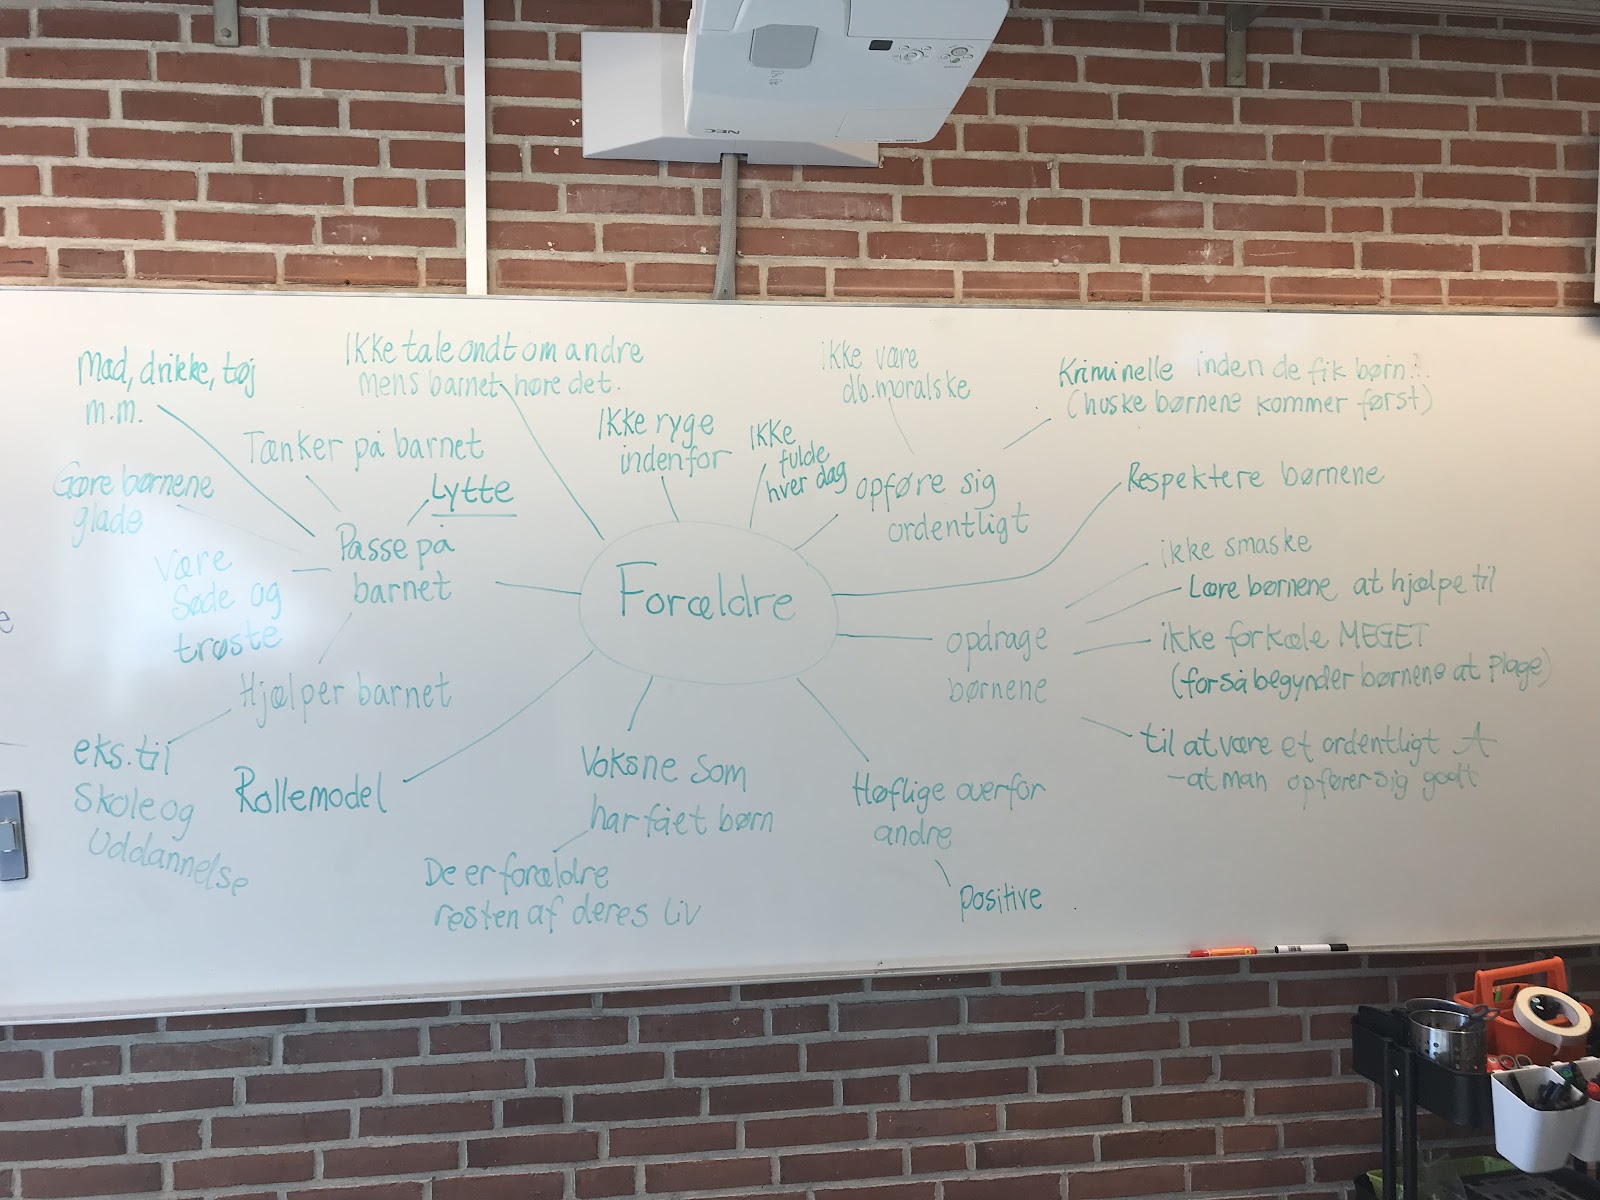 NEC
Mad, drikke, tøj
m.m.
Ikke tale ondt om andre
mens barnet høre det.
Tænker på barnet
Lytte
Gøre børnene
glade
Være
Søde og
trøste
Passe på
barnet
Hjælper barnet
eks. til
Skole og
Uddannelse
Ikke ryge
indenfor
Ikke
fulde
hver dag
ikke være
db.moralske
opføre sig
ordentligt
Kriminelle inden de fik børn...
(huske børnene kommer først)
Respektere børnene
Forældre
opdrage
børnene
ikke smaske
Lære børnene at hjælpe til
ikke forkæle MEGET
(for så begynder børnene at plage)
til at være et ordentligt
-at man opfører sig godt
Rollemodel
Voksne som
har fået børn
De er forældre
resten af deres liv
Høflige overfor
andre
positive